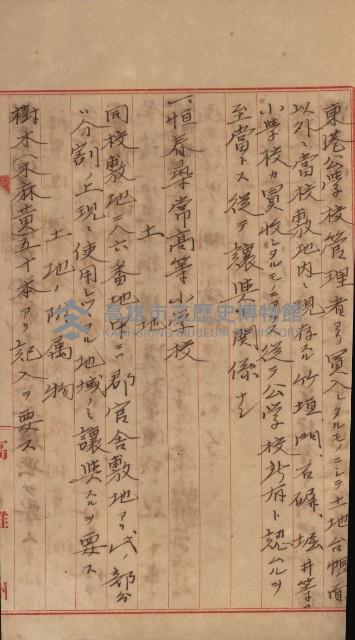 東港公學校管理者ヨリ買入シタルモノニシテ土地台帳面
以外ニ當校敷地内ニ現存スル竹垣、門、石碑、堀井等ハ
小學校カ買收シタルモノニアラス從テ公學校所有ト認ムルヲ
至當トス從テ讓與ノ關係ナシ
一、恒春尋常高等小學校
土地
同校敷地二八六番地中ニハ郡官舎敷地アリ此ノ部分
ハ分割ノ上現ニ使用シツヽアル地域ノミ讓與スルヲ要ス
土地ノ附属物
樹木(木麻黄五十本アリ記入ヲ要ス
高雄市立歷史博物館
KAOHSIUNG MUSEUM OF HISTORY
高雄州